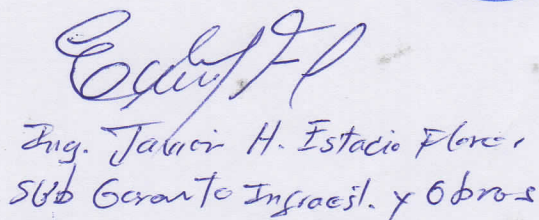 Ing. Javier H. Estacio Flores
Sub Gerante Infraest. y Obras